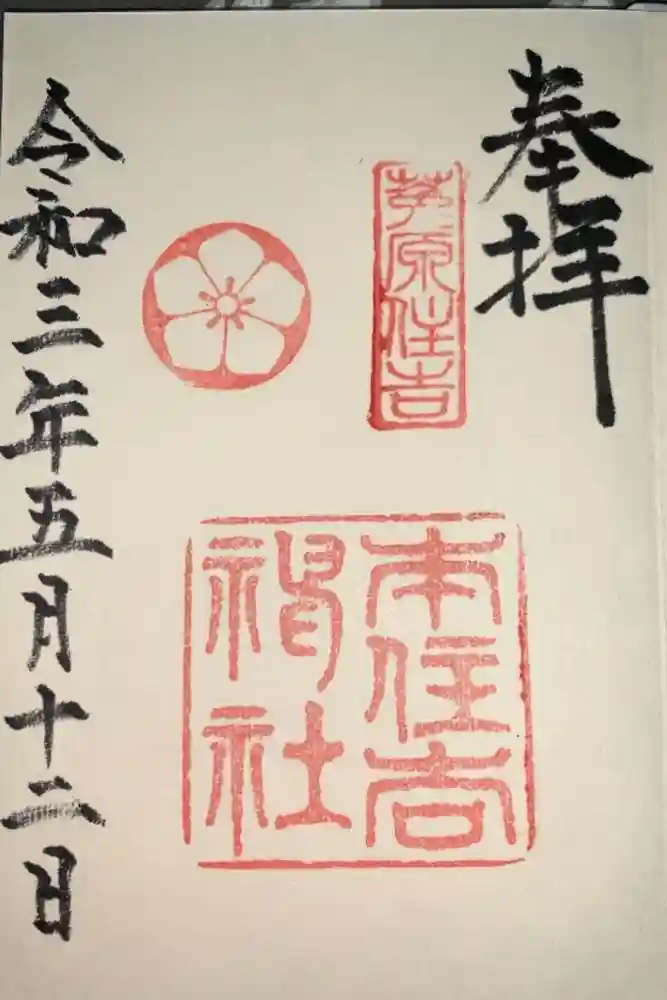 奉拝
莬原住吉
本住吉
神社
令和三年五月十二日